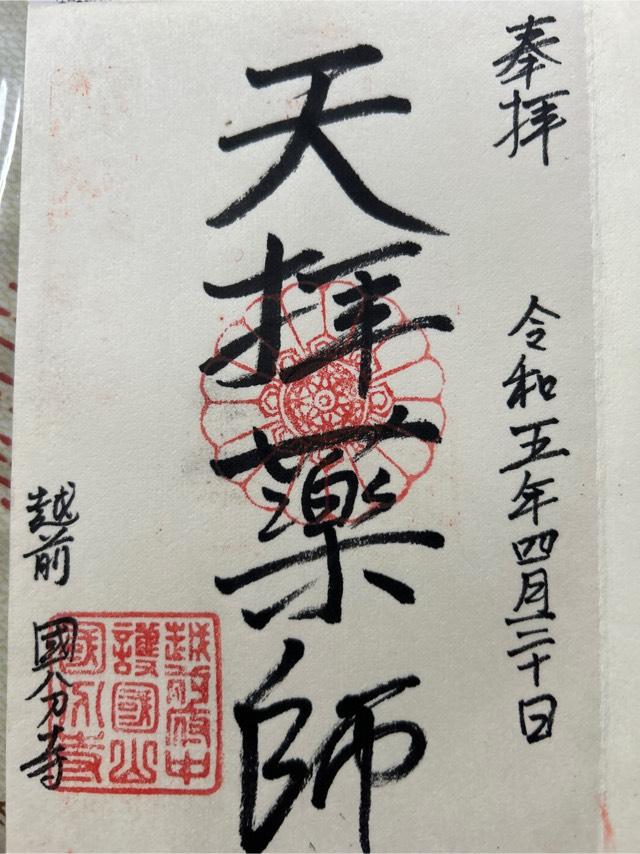 奉拝
令和五年四月三十日
天拝薬師
越前府中
護國山
國分寺
越前 國分寺